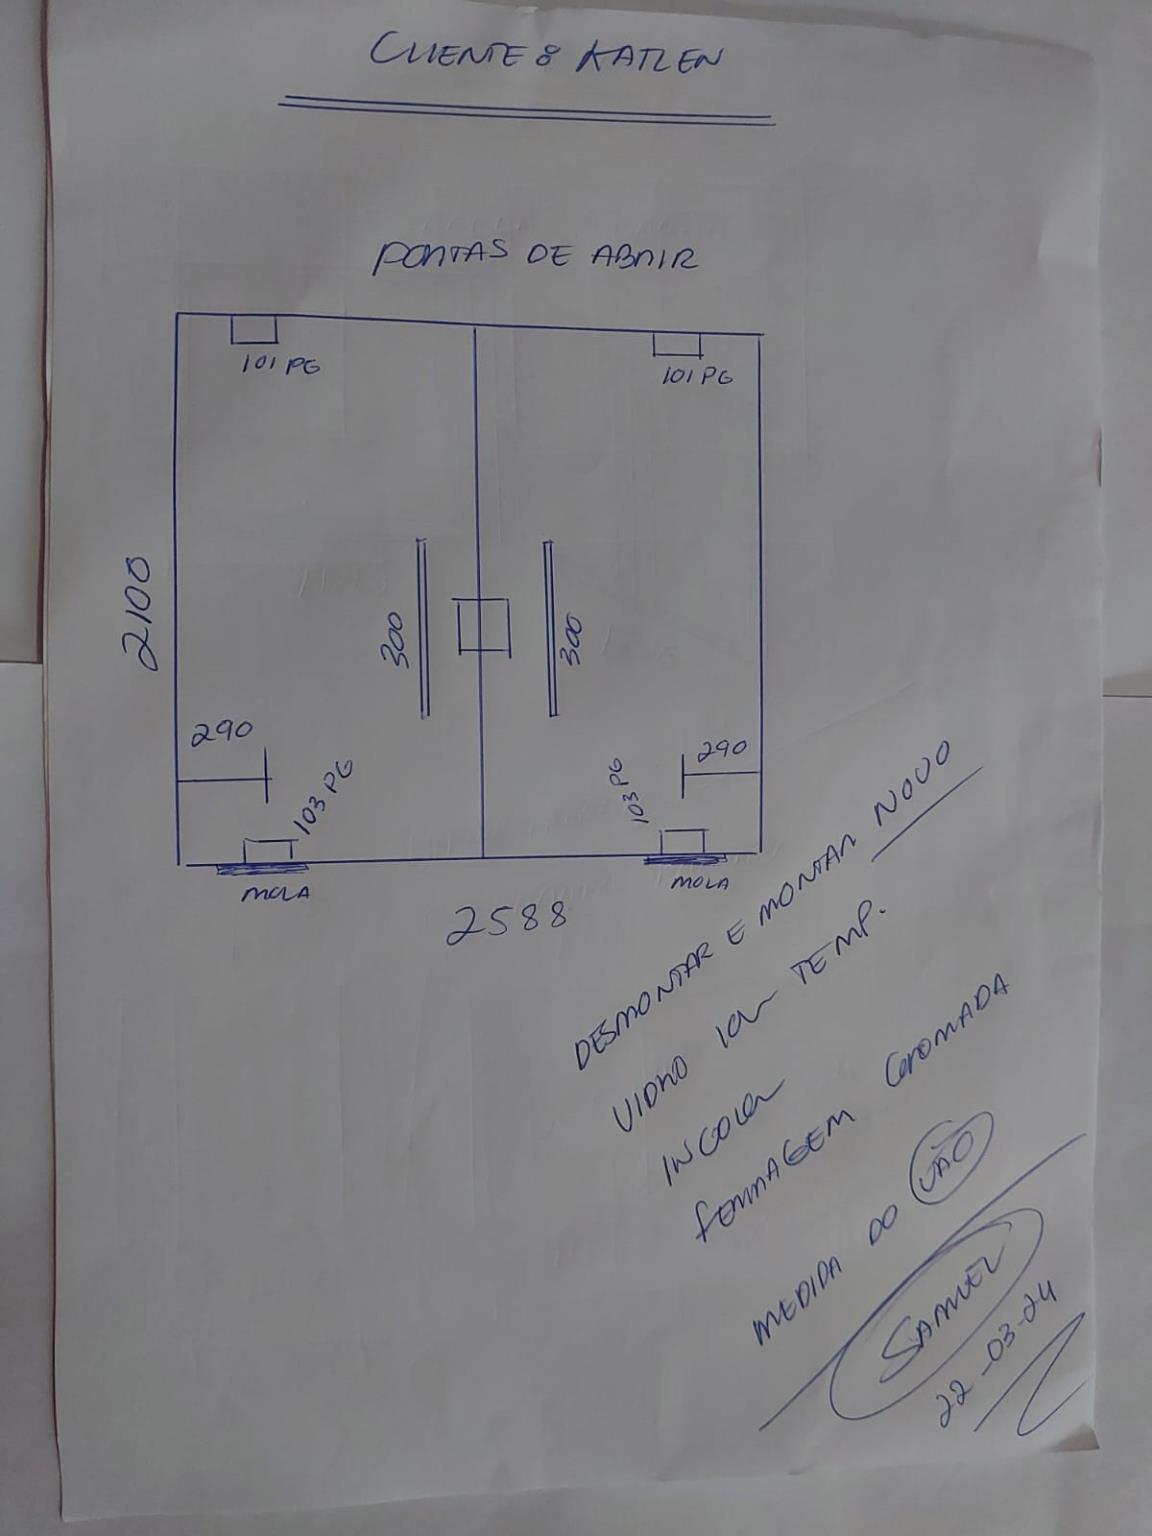 CLIENTE: KATLEN
PORTAS DE ABRIR
101 PG
101 PG
2100
300
300
290
290
103 PG
103 PG
MOLA
MOLA
2588
DESMONTAR E MONTAR NOVO
VIDRO TEMP.
INCOLOR
FERRAGEM CROMADA
MEDIDA DO VÃO
SAMUEL
22-03-24